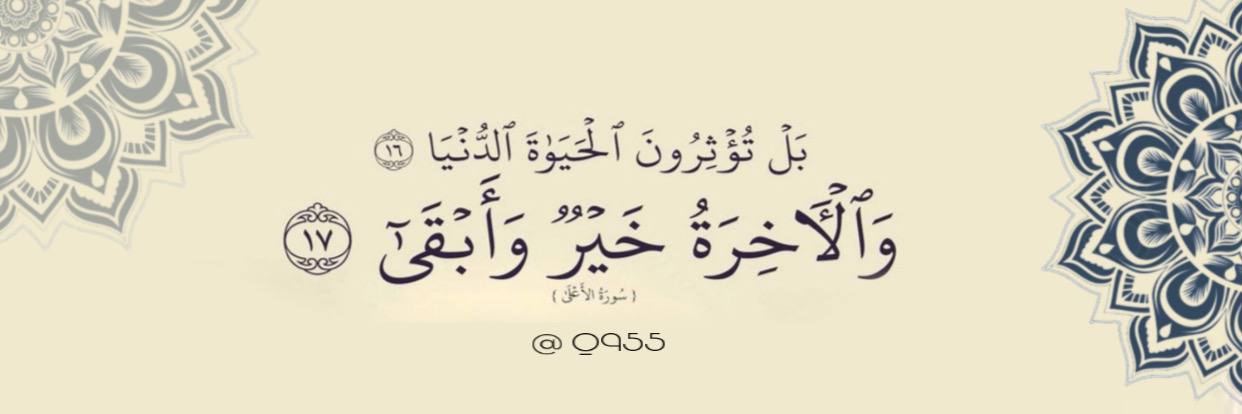 بَلْ تُؤْثِرُونَ ٱلْحَيَوٰةَ ٱلدُّنْيَا ١٦
وَٱلْأَخِرَةُ خَيْرٌ وَأَبْقَىٰٓ ١٧
{ سُورَةُ الأَعْلَىٰ }
@ Q955